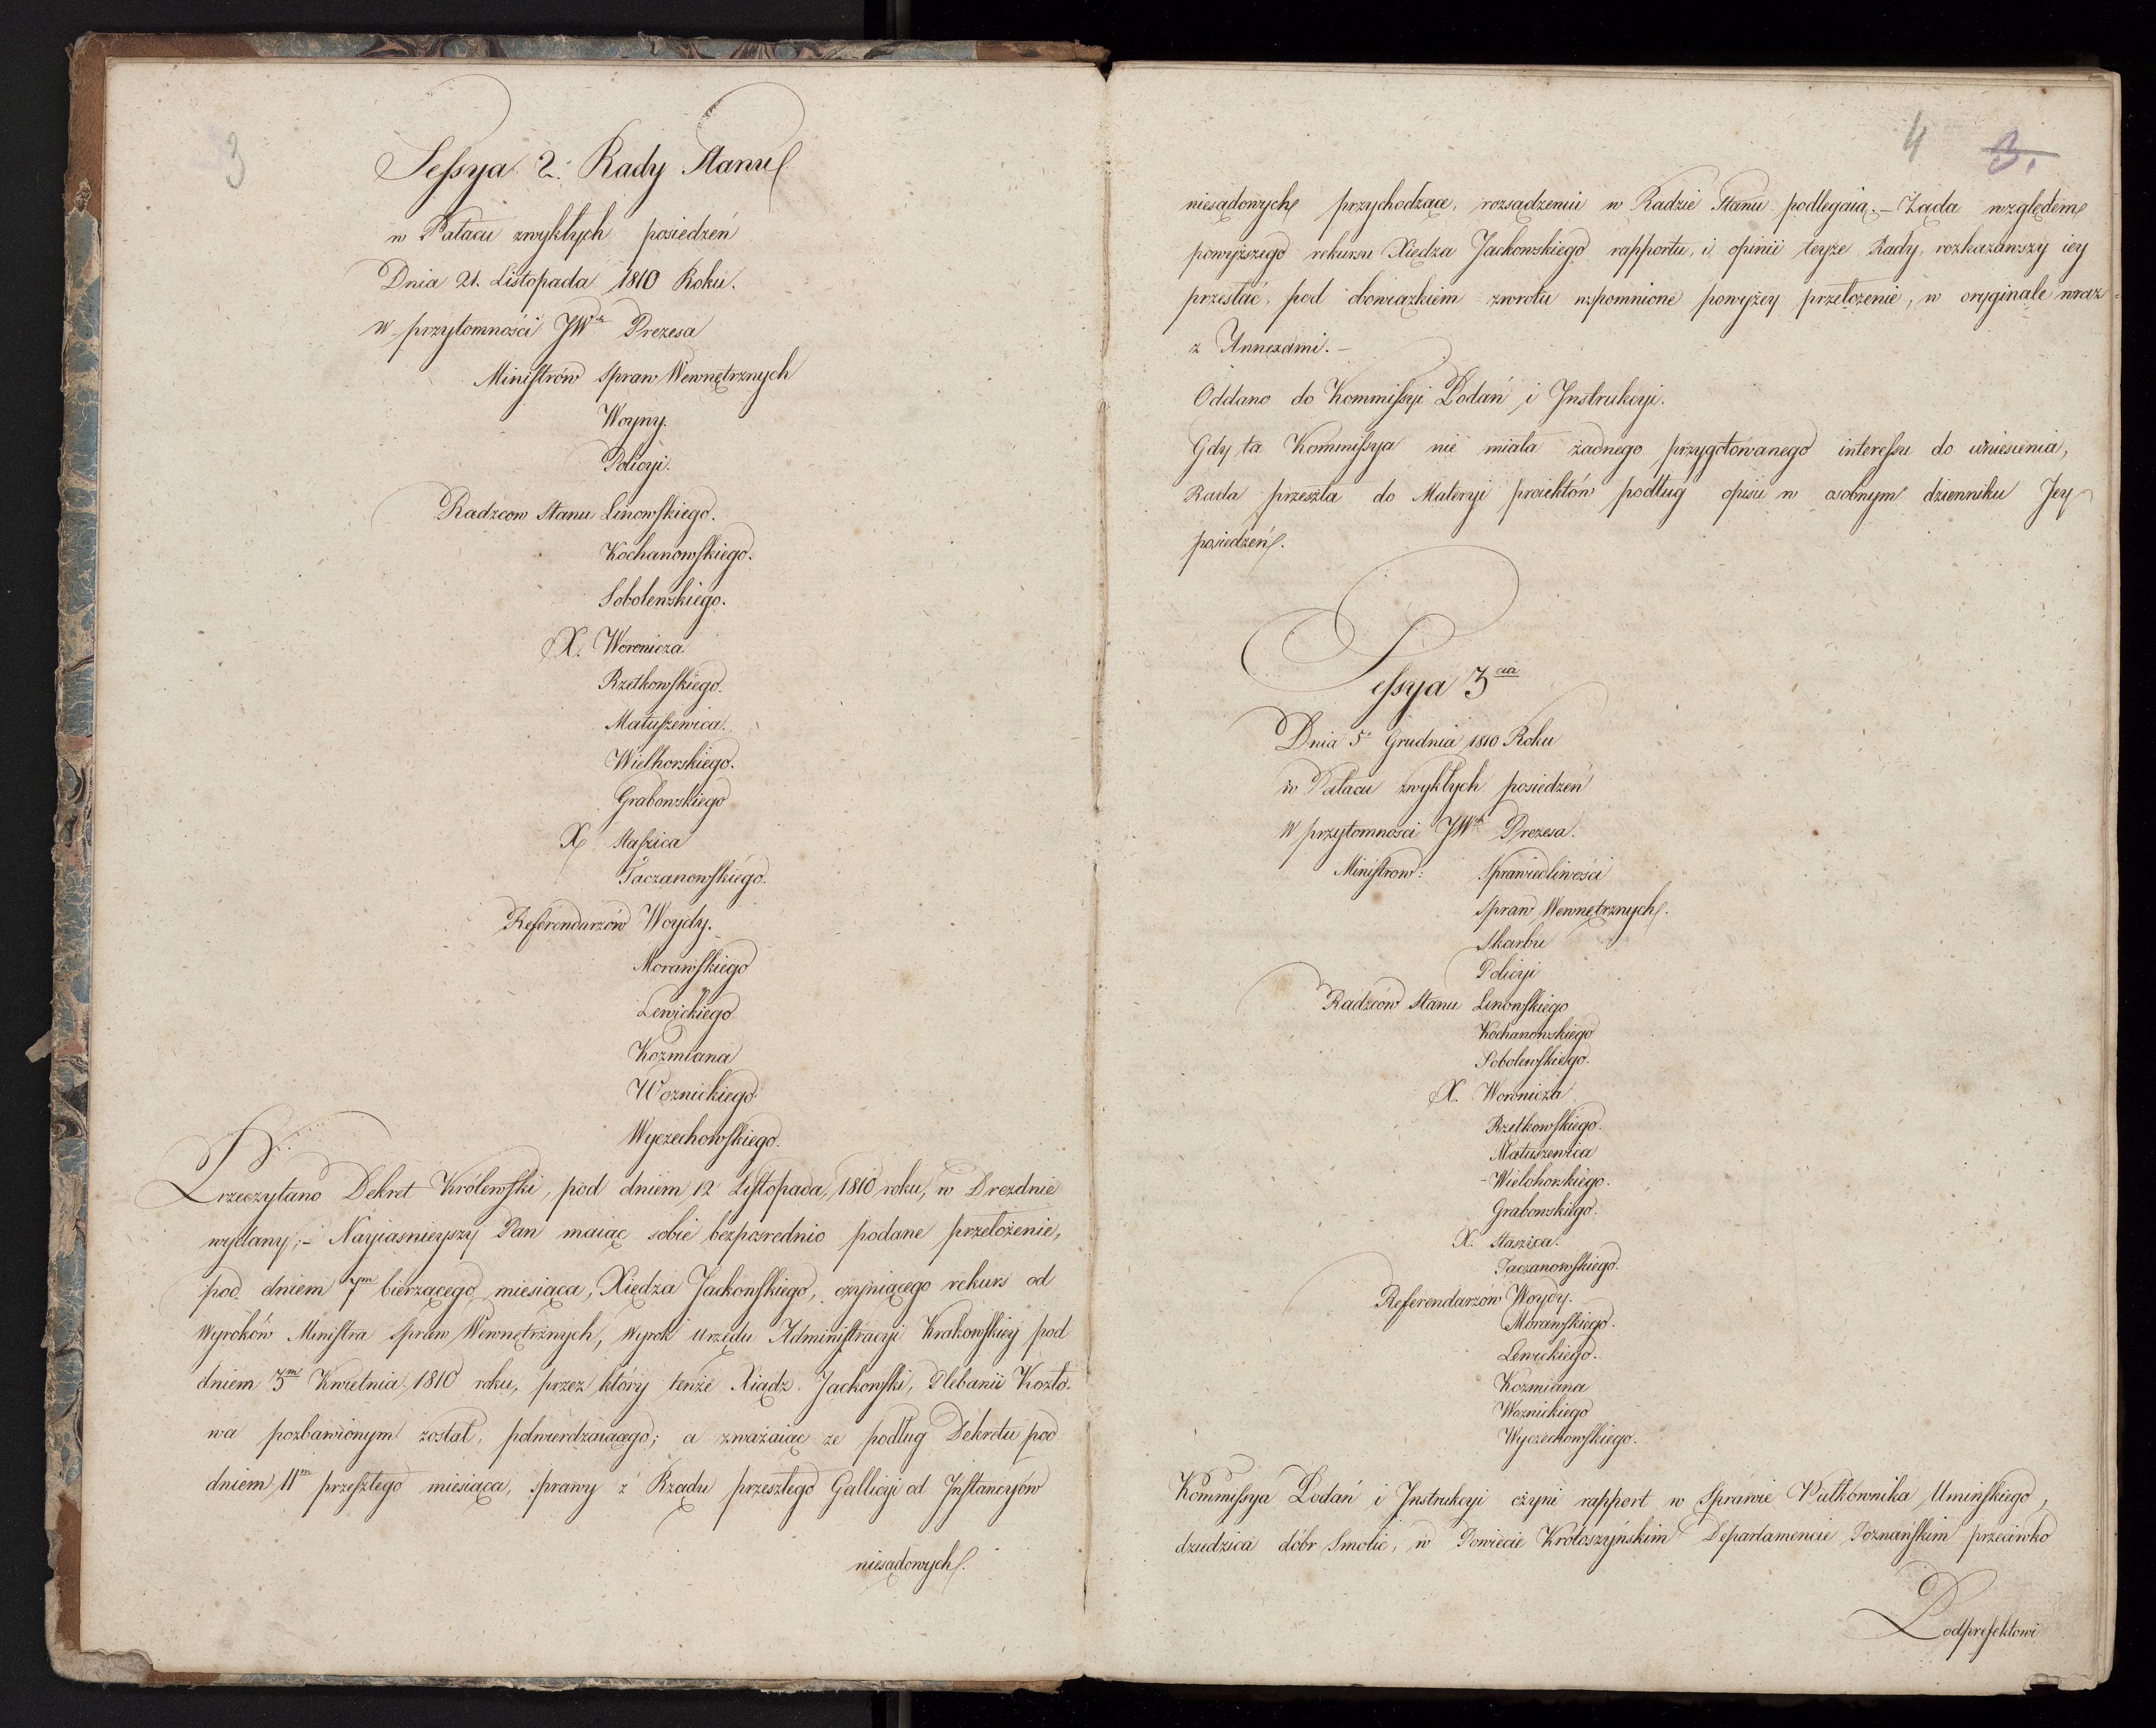 3
Sessya 2. Rady Stanu
w Pałacu zwykłych posiedzeń
Dnia 21. Listopada 1810 Roku.
W przytomności JW Prezesa
Ministrów Spraw Wewnętrznych
Woyny.
Policyi.
Radzcow Stanu Linowskiego.
Kochanowskiego.
Sobolewskiego.
X. Woronicza
Rzetkowskiego.
Matuszewica.
Wielhorskiego.
Grabowskiego
X Staszica
Taczanowskiego.
Referendarzów Woydy.
Morawskiego
Lewickiego
Kozmiana
Woznickiego
Wyczechowskiego.
Przeczytano Dekret Królewski, pod dniem 12 Listopada, 1810 roku, w Dreznie
wydany; – Nayiasnieyszy Pan maiąc sobie bezpośrednio podane przełożenie,
pod dniem 7m bierzącego miesiąca, Xiędza Jackowskiego, czyniącego rekurs od
Wyroków Ministra Spraw Wewnętrznych, Wyrok Urzędu Administracyi Krakowskiey pod
dniem 3m Kwietnia 1810 roku, przez który tenże Xiądz Jackowski, Plebanii Kozło-
wa pozbawionym został, potwierdzaiącego; a zważaiąc że podług Dekretu pod
dniem 11m przeszłego miesiąca, sprawy z Rządu przeszłego Gallicyi od Instancyów
niesądowych.
4 3.
niesądowych przychodzące, rozsądzeniu w Radzie Stanu podlegaią. – Żąda względem
powyższego rekursu Xiędza Jackowskiego rapportu, i opinii teyże Rady, rozkazawszy iey
przesłać, pod obowiązkiem zwrotu wspomnione powyżey przełożenie, w oryginale wraz
z Annexami. –
Oddano do Kommissyi Podań i Instrukcyi.
Gdy ta Kommissya nie miała żadnego przygotowanego interessu do wniesienia,
Rada przeszła do Materyi proiektów podług opisu w osobnym dzienniku Jey
posiedzeń.
Sessya 3cia
Dnia 5o Grudnia 1810 Roku
w Pałacu zwykłych posiedzeń
W przytomności JW Prezesa.
Ministrow: Sprawiedliwości
Spraw Wewnętrznych.
Skarbu
Policyi
Radzców Stanu Linowskiego
Kochanowskiego
Sobolewskiego.
X. Woronicza
Rzetkowskiego.
Matuszewica
Wielohorskiego.
Grabowskiego.
X. Staszica.
Taczanowskiego.
Referendarzów Woydy.
Morawskiego.
Lewickiego.
Kozmiana
Woznickiego
Wyczechowskiego.
Kommissya Podań i Instrukcyi czyni rapport w Sprawie Pułkownika Umińskiego,
dziedzica dóbr Smolic, w Powiecie Krotoszyńskim Departamencie Poznańskim przeciwko
Podprefektowi